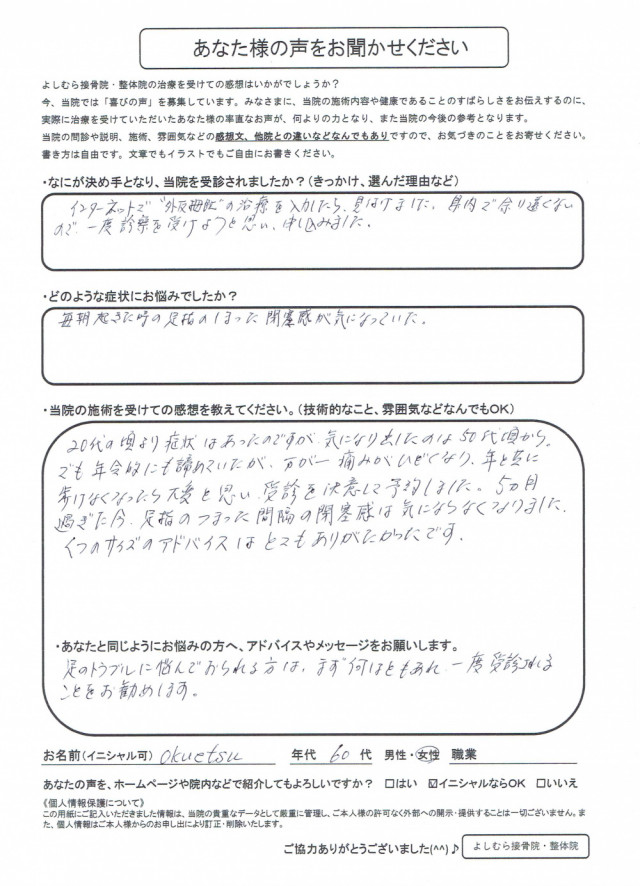 あなた様の声をお聞かせください
よしむら接骨院・整体院の治療を受けての感想はいかがでしょうか?
今、当院では「喜びの声」を募集しています。みなさまに、当院の施術内容や健康であることのすばらしさをお伝えするのに、
実際に治療を受けていただいたあなた様の率直なお声が、何よりの力となり、また当院の今後の参考となります。
当院の問診や説明、施術、雰囲気などの感想文、他院との違いなどなんでもありですので、お気づきのことをお寄せください。
書き方は自由です。文章でもイラストでもご自由にお書きください。
・なにが決め手となり、当院を受診されましたか?(きっかけ、選んだ理由など)
インターネットで"外反拇趾"の治療を入力したら、見つけました。県内で余り遠くない
ので、一度診察を受けようと思い、申し込みました。
・どのような症状にお悩みでしたか?
毎朝起きた時の足指のつまった閉塞感が気になっていた。
・当院の施術を受けての感想を教えてください。(技術的なこと、雰囲気などなんでもOK)
20代の頃より症状はあったのですが、気になり出したのは50代頃から。
でも年令的にも諦めていたが、万が一痛みがひどくなり、年と共に
歩けなくなったら大変と思い、受診を決意して予約しました。5ヵ月
過ぎた今、足指のつまった間隔の閉塞感は気にならなくなりました。
くつのサイズのアドバイスはとてもありがたかったです。
・あなたと同じようにお悩みの方へ、アドバイスやメッセージをお願いします。
足のトラブルに悩んでおられる方は、まず何はともあれ、一度受診される
ことをお勧めします。
お名前(イニシャル可) okuetsu 年代 60 代 男性・女性 職業
あなたの声を、ホームページや院内などで紹介してもよろしいですか? □はい ☑イニシャルならOK □いいえ
《個人情報保護について》
この用紙にご記入いただきました情報は、当院の貴重なデータとして厳重に管理し、ご本人様の許可なく外部への開示・提供することは一切ございません。ま
た、個人情報はご本人様からのお申し出により訂正・削除いたします。
ご協力ありがとうございました(^^)♪ よしむら接骨院・整体院